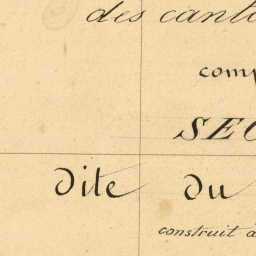 des canto
comp
SEC
dite du
construit à